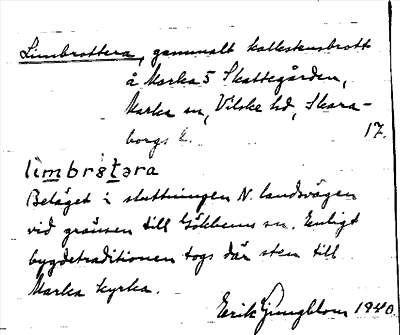 Limbrottera, gammalt kalkstensbrott
å Marka 5 Skattegården,
Marka sn, Vilske hd, Skara-
borgs l. 17.
limbrstara
Beläget i sluttningen N. landsvägen
vid gränsen till Gökhems sn. Enligt
bygdetraditionen togs där sten till
Marka kyrka.
Erik Ljungblom 1940.